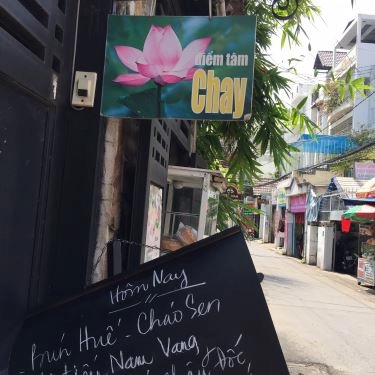 điểm tâm
Chay
Hôm Nay
Bún Huế - Cháo Sen
Nam Vang